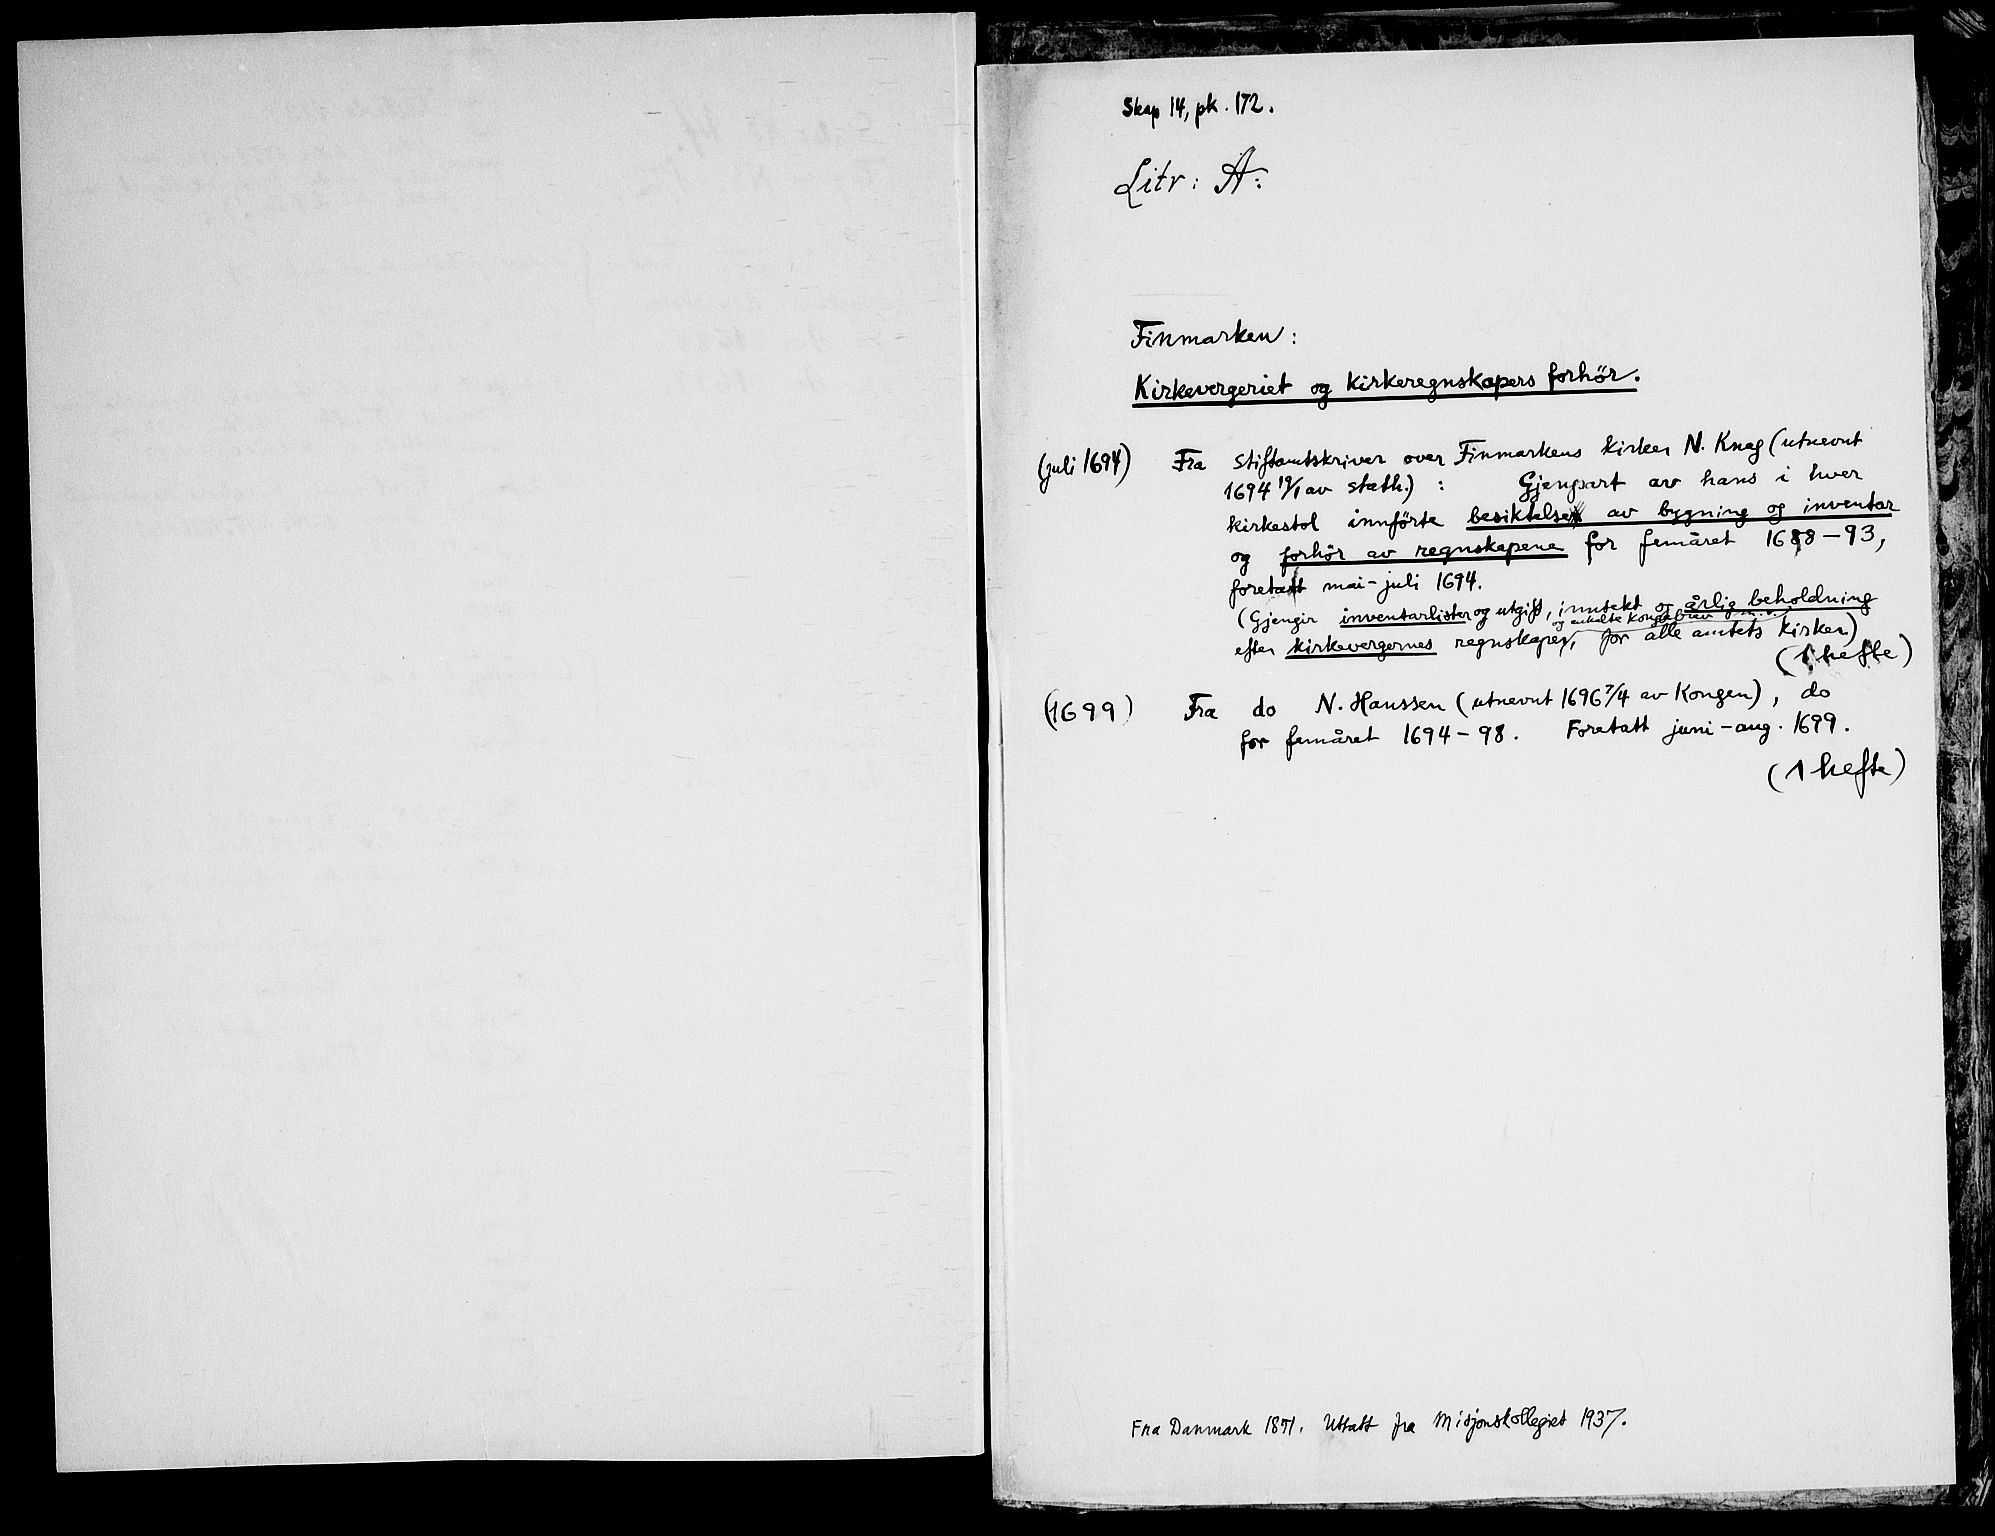 Skap 14, pk. 172.
Litr: A:
Finmarken:
Kirkevergeriet og kirkeregnskapers forhör.
(juli 1694) Fra stiftamtskriver over Finmarkens kirker N. Knag (utnevnt
1694 19/1 av stath.) : Gjenpart av hans i hver
kirkestol innförte besiktelse av bygning og inventar
og forhör av regnskapene for femåret 1688-93,
foretatt mai-juli 1694.
(Gjengir inventarlister og utgift, inntekt og årlig beholdning
og enkelte kongebrev m.v.
efter kirkevergernes regnskaper, for alle amtets kirker)
(1 hefte)
(1699) Fra do N. Hanssen (utnevnt 1696 7/4 av Kongen), do
for femåret 1694-98. Foretatt juni-aug. 1699.
(1 hefte)
Fra Danmark 1851. Uttatt fra Misjonskollegiet 1937.